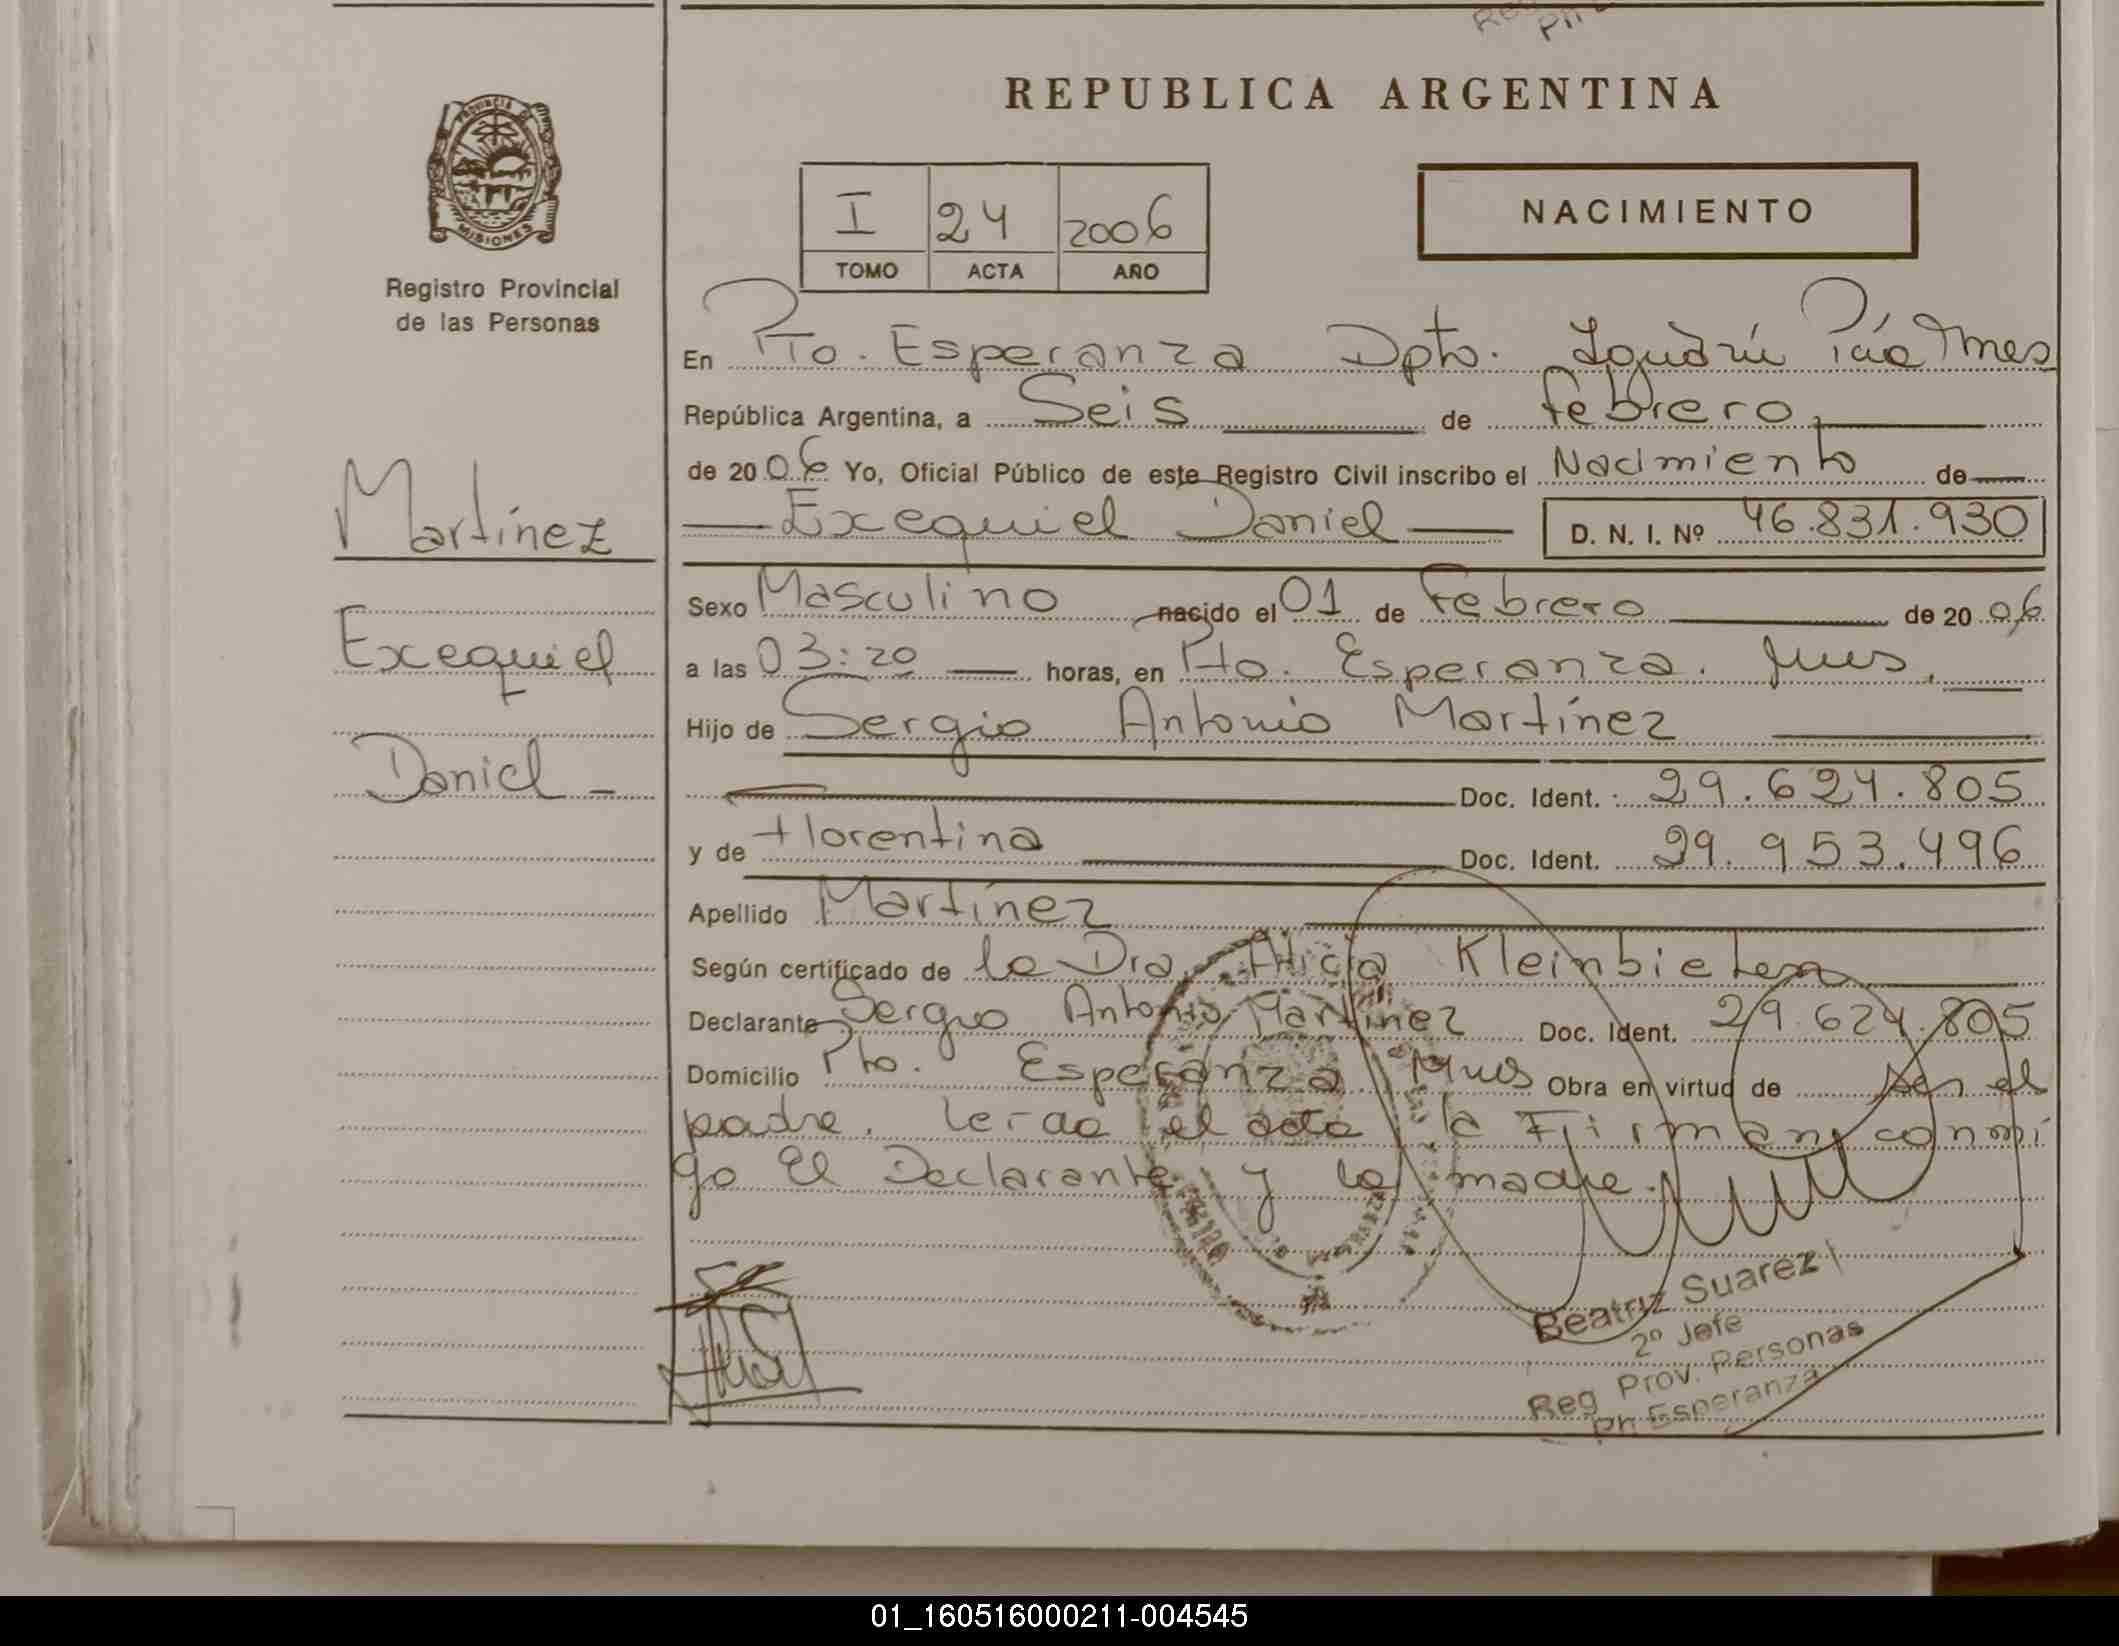 REPUBLICA ARGENTINA
PROVINCIA DE
MISIONES
Registro Provincial
de las Personas
I 24 2006
TOMO ACTA AÑO
NACIMIENTO
Martínez
Exequiel
Daniel -
En Pto. Esperanza Dpto. Iguazú Pcia Mnes
República Argentina, a Seis de febrero,
de 2006 Yo, Oficial Público de este Registro Civil inscribo el Nacimiento de
Exequiel Daniel D. N. I. Nº 46.831.930
Sexo Masculino nacido el 01 de Febrero de 2006
a las 03:20 horas, en Pto. Esperanza. Mnes.
Hijo de Sergio Antonio Martínez
Doc. Ident. 29.624.805
y de Florentina Doc. Ident. 29.953.496
Apellido Martínez
Según certificado de la Dra. Alicia
Declarante Sergio Antonio Martínez Doc. Ident. 29.624.805
Domicilio Pto. Esperanza Mnes Obra en virtud de ser el
padre. Leida el acta la Firman conmi
go El Declarante y la madre.
Beatriz Suarez
2º Jefe
Reg. Prov. Personas
Pto Esperanza
01_160516000211-004545